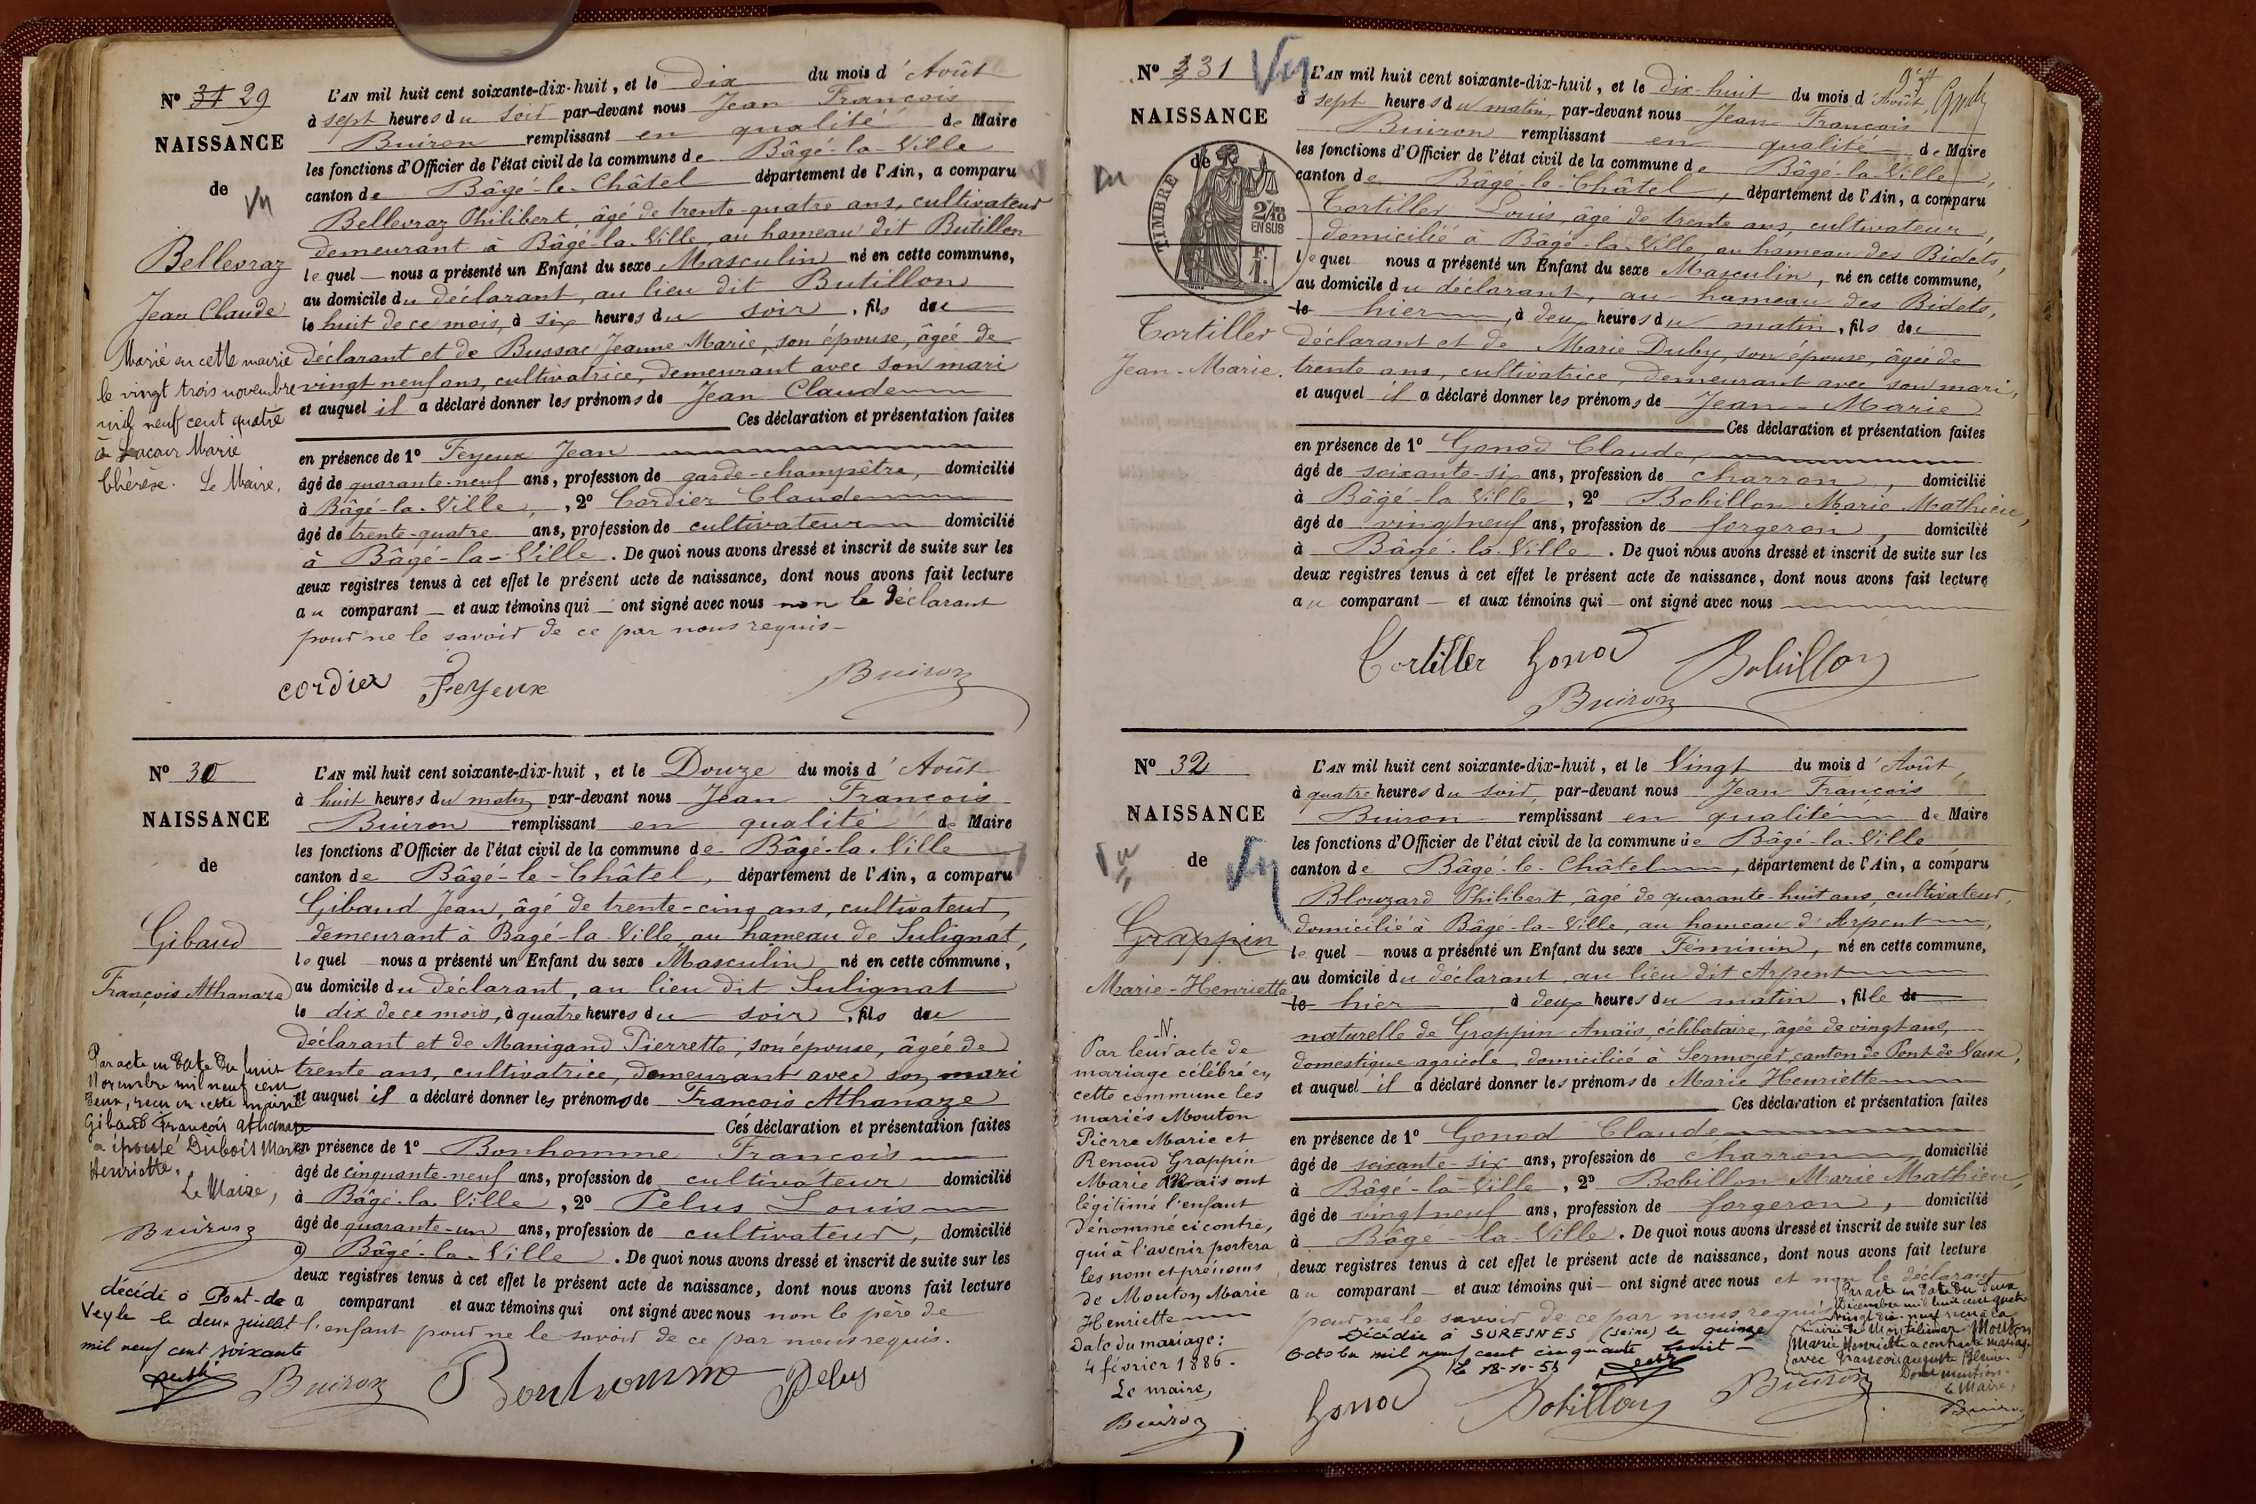 Nº 31 29
NAISSANCE
de
Vu
Bellevraz
Jean Claude
Marié en cette mairie
le vingt trois novembre
mil neuf cent quatre
à Lacour Marie
Thérèse. Le Maire,
L'AN mil huit cent soixante-dix-huit, et le dix du mois d'Août
à sept heures du soir par-devant nous Jean François
Buiron remplissant en qualité de Maire
les fonctions d'Officier de l'état civil de la commune de Bâgé-la-Ville
canton de Bâgé-le-Châtel département de l'Ain, a comparu
Bellevraz Philibert, âgé de trente-quatre ans, cultivateur
demeurant à Bâgé-la-Ville, au hameau dit Butillon
lequel nous a présenté un Enfant du sexe Masculin né en cette commune,
au domicile du déclarant, au lieu dit Butillon
le huit de ce mois, à six heures du soir, fils du
déclarant et de Bussac Jeanne Marie, son épouse, âgée de
vingt neuf ans, cultivatrice, demeurant avec son mari
et auquel il a déclaré donner les prénoms de Jean Claude
Ces déclaration et présentation faites
en présence de 1º Feyeux Jean
âgé de quarante-neuf ans, profession de garde-champêtre, domicilié
à Bâgé-la-Ville, 2º Cordier Claude
âgé de trente-quatre ans, profession de cultivateur domicilié
à Bâgé-la-Ville. De quoi nous avons dressé et inscrit de suite sur les
deux registres tenus à cet effet le présent acte de naissance, dont nous avons fait lecture
au comparant et aux témoins qui ont signé avec nous non le déclarant
pour ne le savoir de ce par nous requis
cordier Feyeux Buiron
Nº 30
NAISSANCE
de
Gibaud
François Athanaze
Par acte en date du huit
Novembre mil neuf cent
deux, reçu en cette mairie
Gibaud François Athanaze
a épousé Dubois Marie
Henriette.
Le Maire,
Buiron
décédé à Pont-de
Veyle le deux juillet
mil neuf cent soixante
L'AN mil huit cent soixante-dix-huit, et le Douze du mois d'Août
à huit heures du matin par-devant nous Jean François
Buiron remplissant en qualité de Maire
les fonctions d'Officier de l'état civil de la commune de Bâgé-la-Ville
canton de Bâgé-le-Châtel, département de l'Ain, a comparu
Gibaud Jean, âgé de trente-cinq ans, cultivateur,
demeurant à Bagé-la-Ville au hameau de Sulignat,
lequel nous a présenté un Enfant du sexe Masculin né en cette commune,
au domicile du déclarant, au lieu dit Sulignat
le dix de ce mois, à quatre heures du soir, fils du
déclarant et de Manigand Pierrette, son épouse, âgée de
trente ans, cultivatrice, demeurant avec son mari
et auquel il a déclaré donner les prénoms de François Athanaze
Ces déclaration et présentation faites
en présence de 1º Bonhomme François
âgé de cinquante-neuf ans, profession de cultivateur domicilié
à Bâgé-la-Ville, 2º Pelus Louis
âgé de quarante-un ans, profession de cultivateur, domicilié
à Bâgé-la-Ville. De quoi nous avons dressé et inscrit de suite sur les
deux registres tenus à cet effet le présent acte de naissance, dont nous avons fait lecture
a comparant et aux témoins qui ont signé avec nous non le père de
l'enfant pour ne le savoir de ce par nous requis.
Buiron Bonhomme Pelus
Nº 3 31
NAISSANCE
de
Vu
TIMBRE
2/10
EN SUS
F.
1.
Tortiller
Jean-Marie.
L'AN mil huit cent soixante-dix-huit, et le dix-huit du mois d'Août,
à sept heures du matin, par-devant nous Jean François
Buiron remplissant en qualité de Maire
les fonctions d'Officier de l'état civil de la commune de Bâgé-la-Ville,
canton de Bâgé-le-Châtel, département de l'Ain, a comparu
Tortiller Louis, âgé de trente ans, cultivateur,
domicilié à Bâgé-la-Ville au hameau des Bidets,
lequel nous a présenté un Enfant du sexe Masculin, né en cette commune,
au domicile du déclarant, au hameau des Bidets,
le hier, à deux heures du matin, fils du
déclarant et de Marie Duby, son épouse, âgée de
trente ans, cultivatrice, demeurant avec son mari,
et auquel il a déclaré donner les prénoms de Jean-Marie
Ces déclaration et présentation faites
en présence de 1º Gonod Claude,
âgé de soixante-six ans, profession de charron, domicilié
à Bâgé-la-Ville, 2º Bobillon Marie Mathieu,
âgé de vingt neuf ans, profession de forgeron, domicilié
à Bâgé-la-Ville. De quoi nous avons dressé et inscrit de suite sur les
deux registres tenus à cet effet le présent acte de naissance, dont nous avons fait lecture
au comparant et aux témoins qui ont signé avec nous
Tortiller Gonod Bobillon
Buiron
Nº 32
NAISSANCE
de
Vu
Grappin
Marie-Henriette
N.
Par leur acte de
mariage célébré en
cette commune les
mariés Mouton
Pierre Marie et
Renoud Grappin
Marie Anaïs ont
légitimé l'enfant
dénommé ci contre,
qui à l'avenir portera
les nom et prénoms
de Mouton Marie
Henriette
Date du mariage:
4 février 1886.
Le maire,
Buiron
L'AN mil huit cent soixante-dix-huit, et le Vingt du mois d'Août,
à quatre heures du soir, par-devant nous Jean François
Buiron remplissant en qualité de Maire
les fonctions d'Officier de l'état civil de la commune de Bâgé-la-Ville
canton de Bâgé-le-Châtel, département de l'Ain, a comparu
Blouzard Philibert, âgé de quarante-huit ans, cultivateur,
domicilié à Bâgé-la-Ville, au hameau d'Arpent,
lequel nous a présenté un Enfant du sexe Féminin, né en cette commune,
au domicile du déclarant, au lieu dit Arpent
le hier, à deux heures du matin, fille de
naturelle de Grappin Anaïs, célibataire, âgée de vingt ans,
domestique agricole, domiciliée à Sermoyer, canton de Pont de Vaux,
et auquel il a déclaré donner les prénoms de Marie Henriette
Ces déclaration et présentation faites
en présence de 1º Gonod Claude
âgé de soixante-six ans, profession de charron domicilié
à Bâgé-la-Ville, 2º Bobillon Marie Mathieu,
âgé de vingt neuf ans, profession de forgeron, domicilié
à Bâgé-la-Ville. De quoi nous avons dressé et inscrit de suite sur les
deux registres tenus à cet effet le présent acte de naissance, dont nous avons fait lecture
au comparant et aux témoins qui ont signé avec nous et non le déclarant
pour ne le savoir de ce par nous requis
Décédée à SURESNES (Seine) le quinze
Octobre mil neuf cent cinquante huit
Le 18-10-58
Par acte en date du deux
Décembre mil huit cent quatre
vingt dix neuf reçu à la
mairie de Montélimar Mouton
Marie Henriette a contracté mariage
avec François Auguste
Dont mention.
Le Maire,
Buiron
Gonod Bobillon Buiron